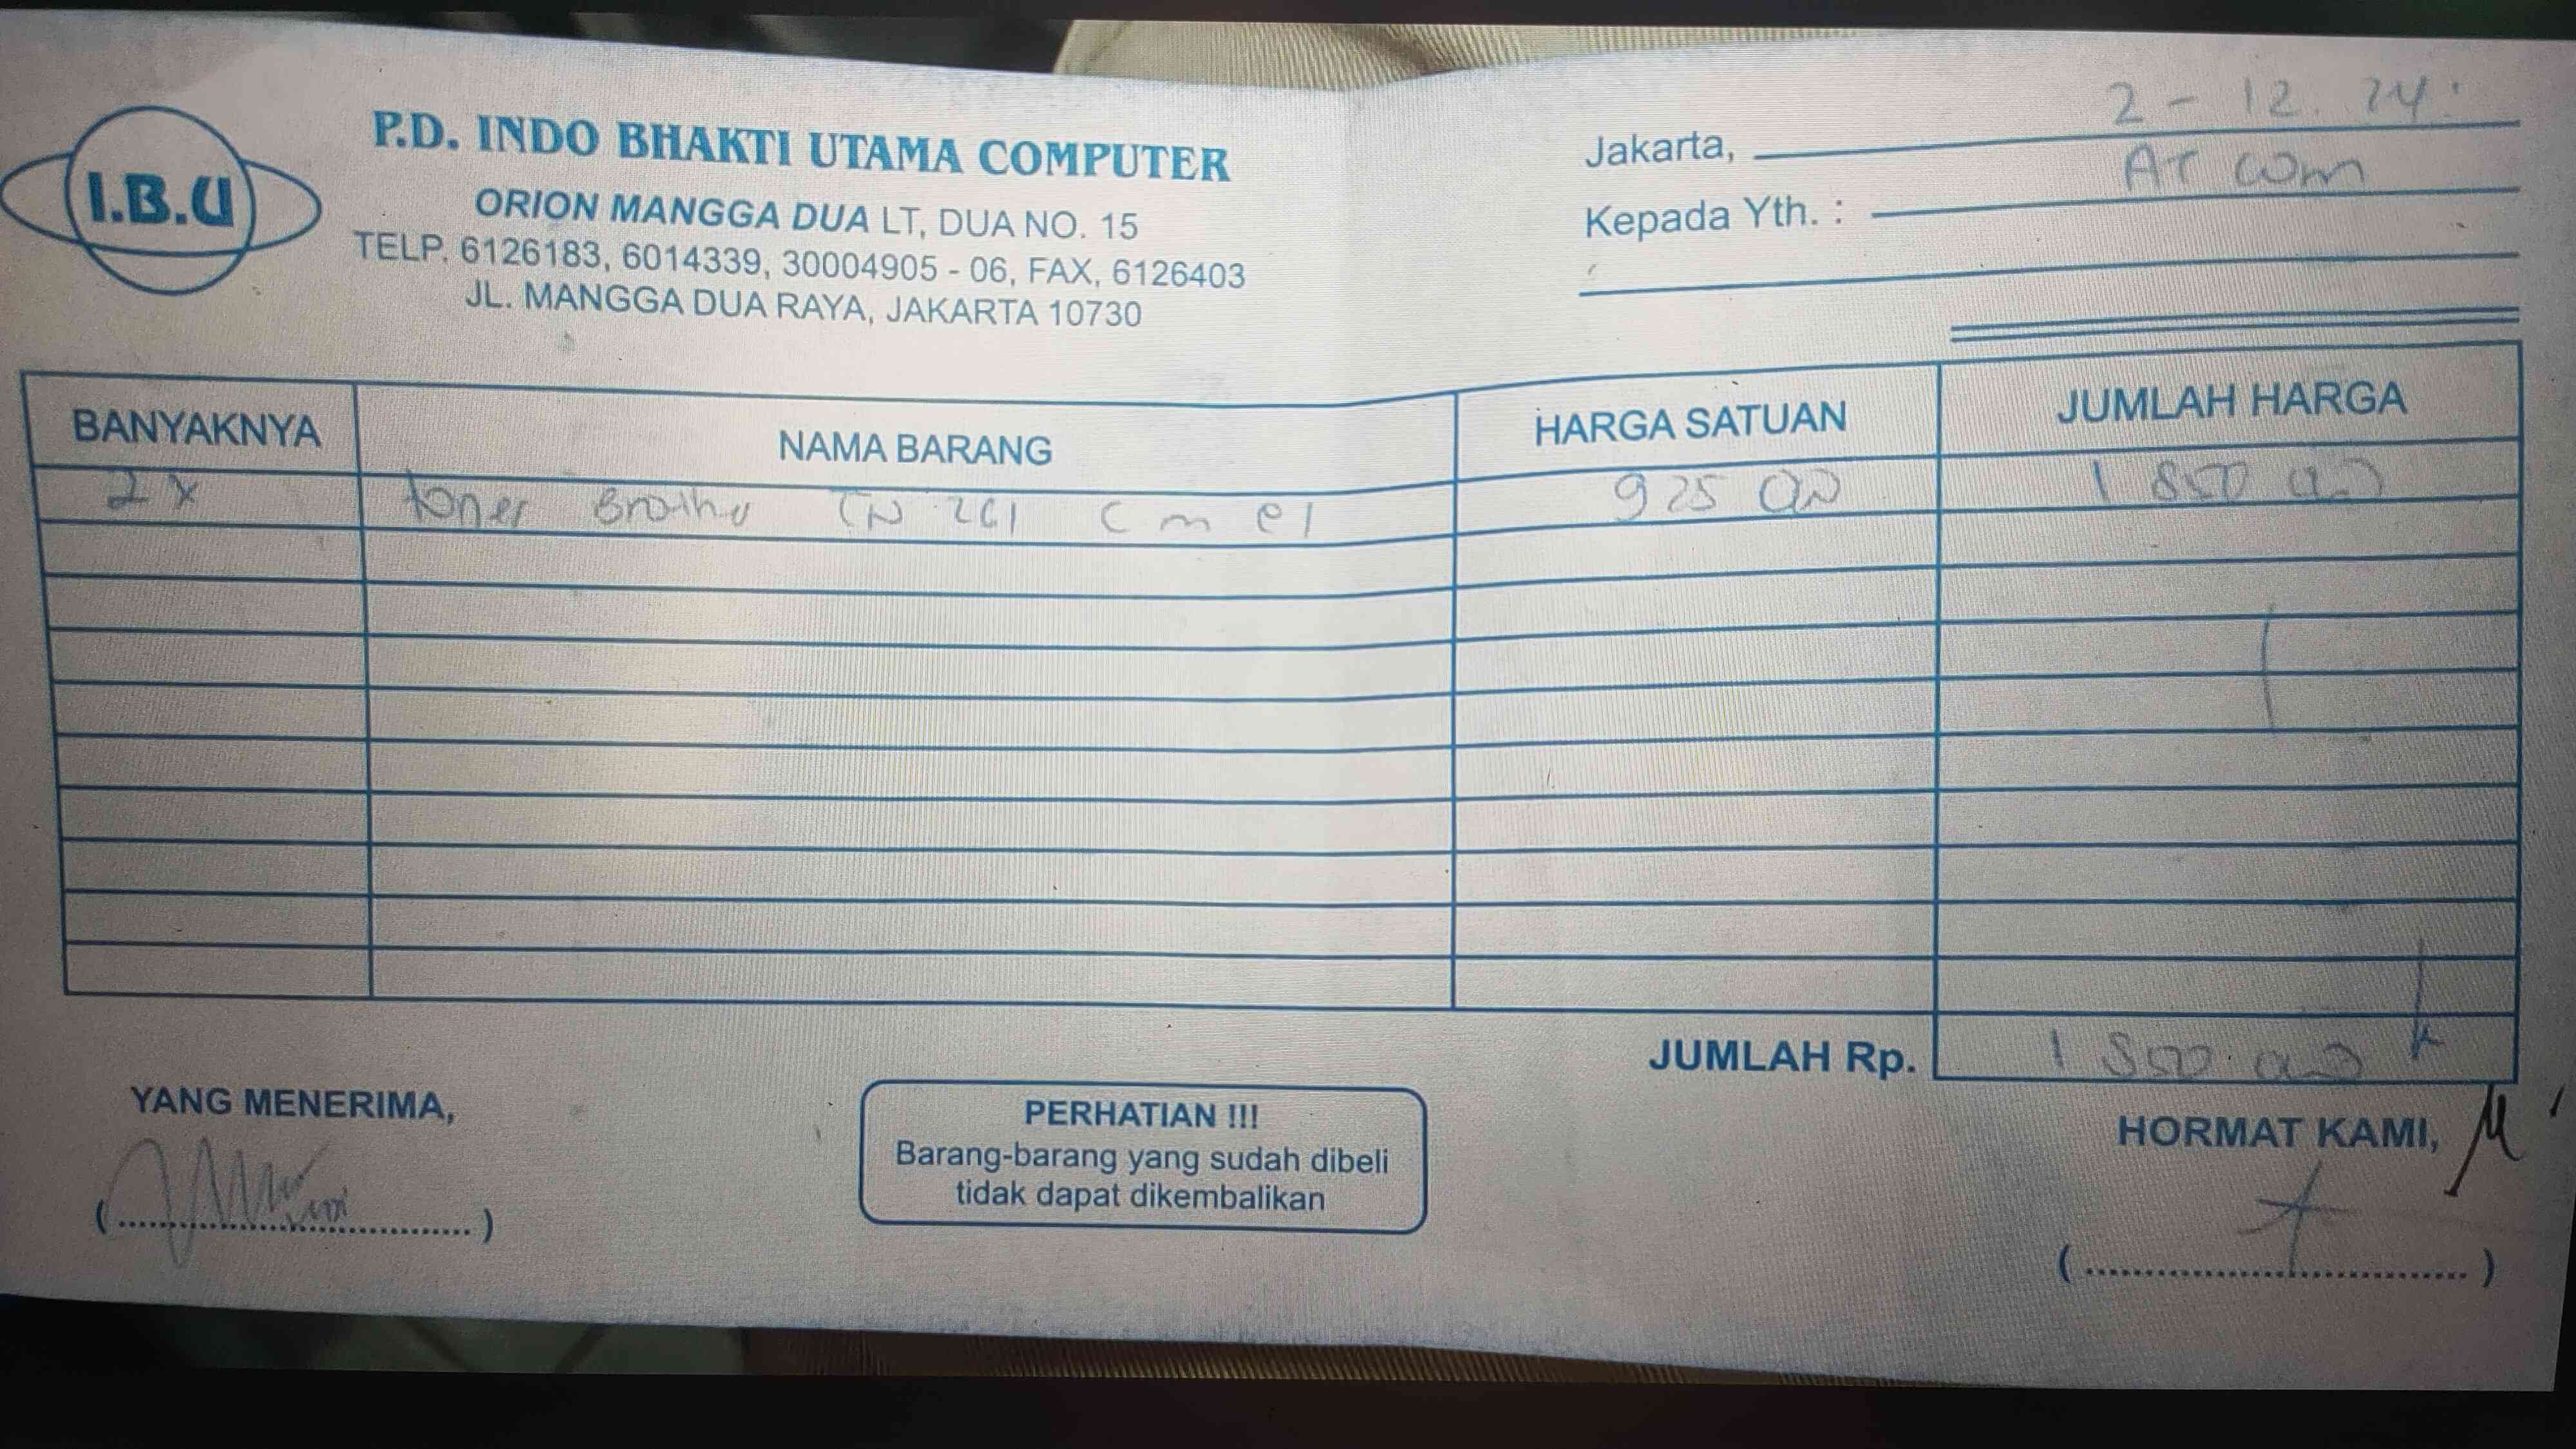 I.B.U
P.D. INDO BHAKTI UTAMA COMPUTER
ORION MANGGA DUA LT, DUA NO. 15
TELP. 6126183, 6014339, 30004905 - 06, FAX, 6126403
JL. MANGGA DUA RAYA, JAKARTA 10730
Jakarta, 2 - 12. 24.
Kepada Yth. : AT com
BANYAKNYA NAMA BARANG HARGA SATUAN JUMLAH HARGA
2 x toner Brother TN 261 C m 925 000 1 850 000
JUMLAH Rp. 1 850.000
YANG MENERIMA,
PERHATIAN !!!
Barang-barang yang sudah dibeli
tidak dapat dikembalikan
HORMAT KAMI,